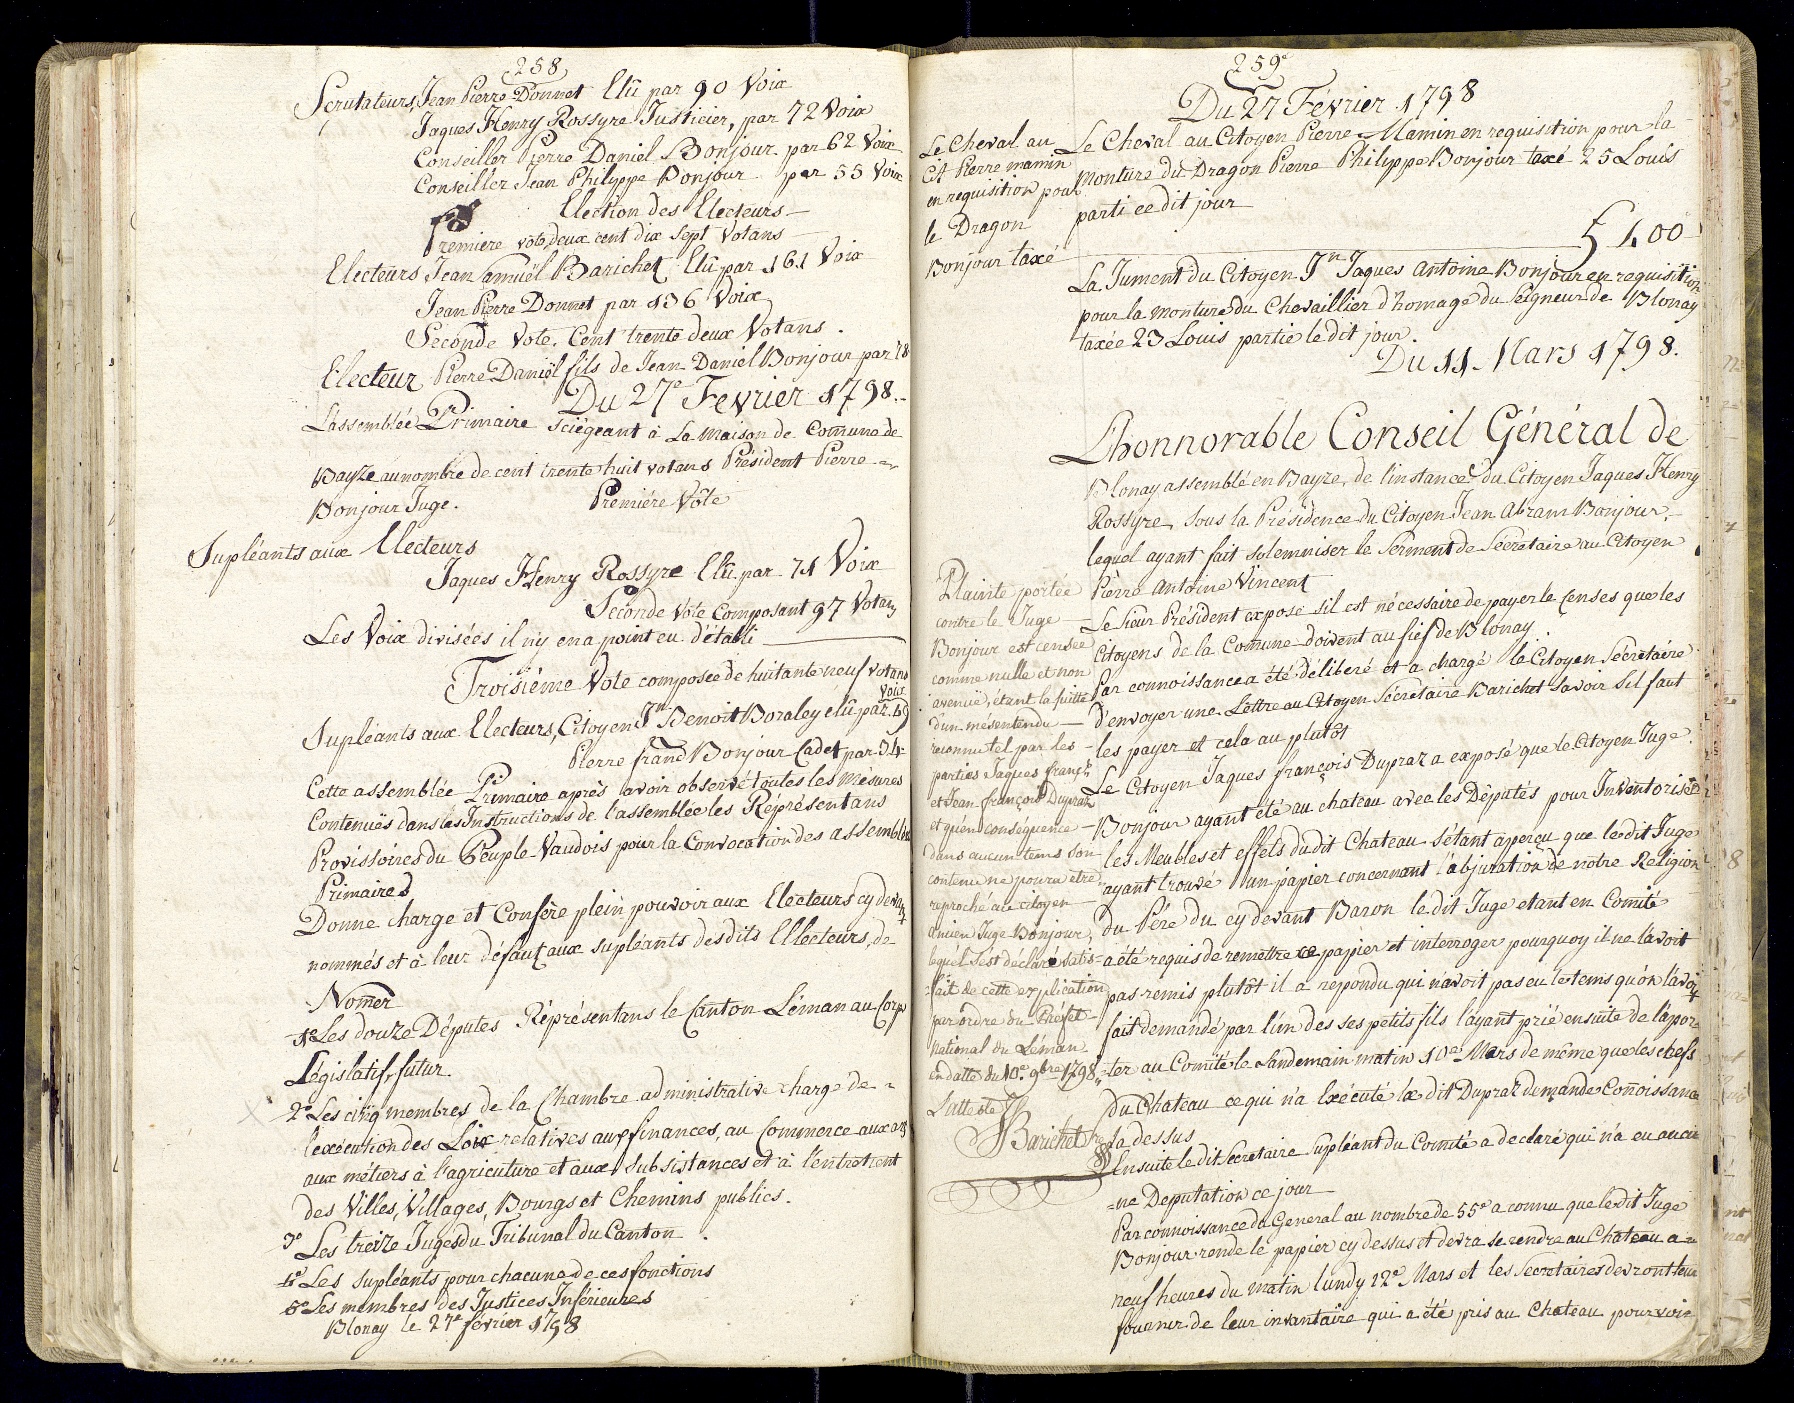 258
Scrutateurs, Jean Pierre Donnet Elû par 90 Voix
Jaques Henry Rossyre Justicier, par 72 Voix
Conseiller Pierre Daniel Bonjour par 62 Voix
Conseiller Jean Philippe Bonjour par 55 Voix
Election des Electeurs
Premiere vote deux cent dix sept Votans
Electeurs, Jean Samuël Barichet Elû par 161 Voix
Jean Pierre Donnet par 136 Voix
Seconde Vote, Cent trente deux Votans.
Electeur Pierre Daniël fils de Jean Daniel Bonjour par 78
Du 27e Fevrier 1798.
L'assemblée Primaire sciégeant à La Maison de Comune de
Bayze au nombre de cent trente huit votans Président Pierre
Bonjour Juge. Premiére Vôte
Supléants aux Electeurs
Jaques Henry Rossyre Elû par 71 Voix
Seconde Vote Composant 97 Votans
Les Voix divisées il n'y en a point eu d'établi
Troisiéme Vôte composée de huitante neuf votans
Voix
Supléants aux Electeurs, Citoyen Jn Benoit Boraley élû par 49
Pierre franc Bonjour Cadet par 34
Cette assemblée Primaire après avoir observé toutes les Mésures
Contenuës dans les Instructions de l'assemblée les Réprésentans
Provissoires du Peuple Vaudois pour la Convocation des assemblées
Primaires
Donne charge et Confère plein pouvoir aux Electeurs cy devant
nommés et à leur défaut aux supléants desdits Ellecteurs, de
Nomer
1e Les douze Députes Réprésentans le Canton Léman au Corp
Législatif, futur.
2e Les cinq membres de la Chambre administrative charge de
l'exécution des Loix relatives aux finances, au Commerce aux arts
aux métiers à l'agricuture et aux subsistances et à l'entretient
des Villes, Villages, Bourgs et Chemins publics.
3e Les treize Juges du Tribunal du Canton
4e Les supléants pour chacune de ces fonctions
5e Les membres des Justices Inférieures
Blonay le 27e février 1798
259e
Du 27 Février 1798
Le Cheval au
Cit Pierre mamin
en requisition pour
le Dragon
Bonjour taxé
Le Cheval au Citoyen Pierre Mamin en requisition pour la
Monture du Dragon Pierre Philippe Bonjour taxé 25 Louis
parti ce dit jour
§ L 00
La Jument du Citoyen Jn Jaques Antoine Bonjour en requisition
pour la Monture du Chevaillier d'homage du Seigneur de Blonay
taxée 23 Louis partie le dit jour.
Du 11 Mars 1798.
L'honnorable Conseil Général de
Blonay assemblé en Bayze, de l'instance du Citoyen Jaques Henry
Rossyre, sous la Présidence du Citoyen Jean Abram Bonjour,
lequel ayant fait solemniser le Serment de Sécretaire au Citoyen
Pierre Antoine Vincent
Le Sieur Président expose s'il est nécessaire de payer le Censes que les
Citoyens de la Comune doivent au fief de Blonay
Par connoissance a été déliberé et a chargé le Citoyen Sécretaire
d'envoyer une Lettre au Citoyen Sécretaire Barichet Savoir S'il faut
les payer et cela au plutôt
Le Citoyen Jaques françois Dupraz a exposé que le Citoyen Juge
Bonjour ayant été au chateau avec les Députés pour Inventoriser
les Meubles et effets dudit Chateau s'étant aperçu que le dit Juge
ayant trouvé un papier concernant l'abjuration de nôtre Religion
du Père du cy devant Baron le dit Juge etant en Comité
a été requis de remettre ce papier et interroger pourquoy il ne l'avoit
pas remis plutôt il a repondu qui n'avoit pas eu le tems qu'on l'avoit
fait demandé par l'un des ses petits fils l'ayant prié ensuite de l'apor-
ter au Comité le Landemain matin 10e Mars de même que les chefs
du Chateau ce qui n'a exécuté le dit Dupraz demande Connoissance
la dessus
Ensuite le dit Secretaire Supléant du Comité a declaré qui n'a eu aucu
=ne Deputation ce jour
Par connoissance du General au nombre de 55e a connu que le dit Juge
Bonjour rende le papier cy dessus et devra se rendre au Chateau a
neuf heures du matin lundy 12e Mars et les Secretaires devront leur
fournir de leur invantaire qui a été pris au Chateau pour voir
Plainte portée
contre le Juge
Bonjour est censée
comme nulle et non
avenuë, étant la suitte
d'un mésentendu
reconnu tel par les
parties Jaques franç
et Jean françois Dupraz
et qu'en conséquence
dans aucun tems son
contenu ne poura être
reproché au citoyen
ancien Juge Bonjour,
lequel s'est déclaré satis-
fait de cette explication
par ordre du Préfet
national du Léman
en datte du 10e 9bre 1798
L'atteste
Barichet